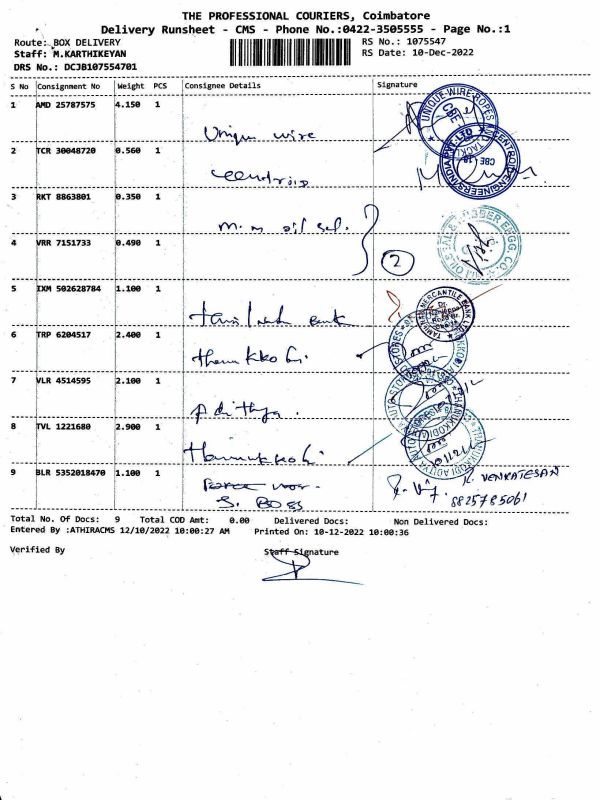 THE PROFESSIONAL COURIERS, Coimbatore
Delivery Runsheet - CMS - Phone No.:0422-3505555 - Page No.:1
Route: BOX DELIVERY RS No.: 1075547
Staff: M.KARTHIKEYAN RS Date: 10-Dec-2022
DRS No.: DCJB107554701
S No Consignment No Weight PCS Consignee Details Signature
1 AMD 25787575 4.150 1
Unique wire
UNIQUE WIRE ROPES CBE
2 TCR 30048720 0.560 1
Centroid
CENTROID ENGINEERS INDIA PVT LTD CBE
3 RKT 8863801 0.350 1
M.M oil sel.
4 VRR 7151733 0.490 1
2
5 IXM 502628784 1.100 1
Bank
TAMILNAD MERCANTILE BANK LTD
6 TRP 6204517 2.400 1
7 VLR 4514595 2.100 1
Adithya.
8 TVL 1221680 2.900 1
9 BLR 5352018470 1.100 1
S. BOSS
R. VENKATESAN
8825785061
Total No. Of Docs: 9 Total COD Amt: 0.00 Delivered Docs: Non Delivered Docs:
Entered By :ATHIRACMS 12/10/2022 10:00:27 AM Printed On: 10-12-2022 10:00:36
Verified By Staff Signature